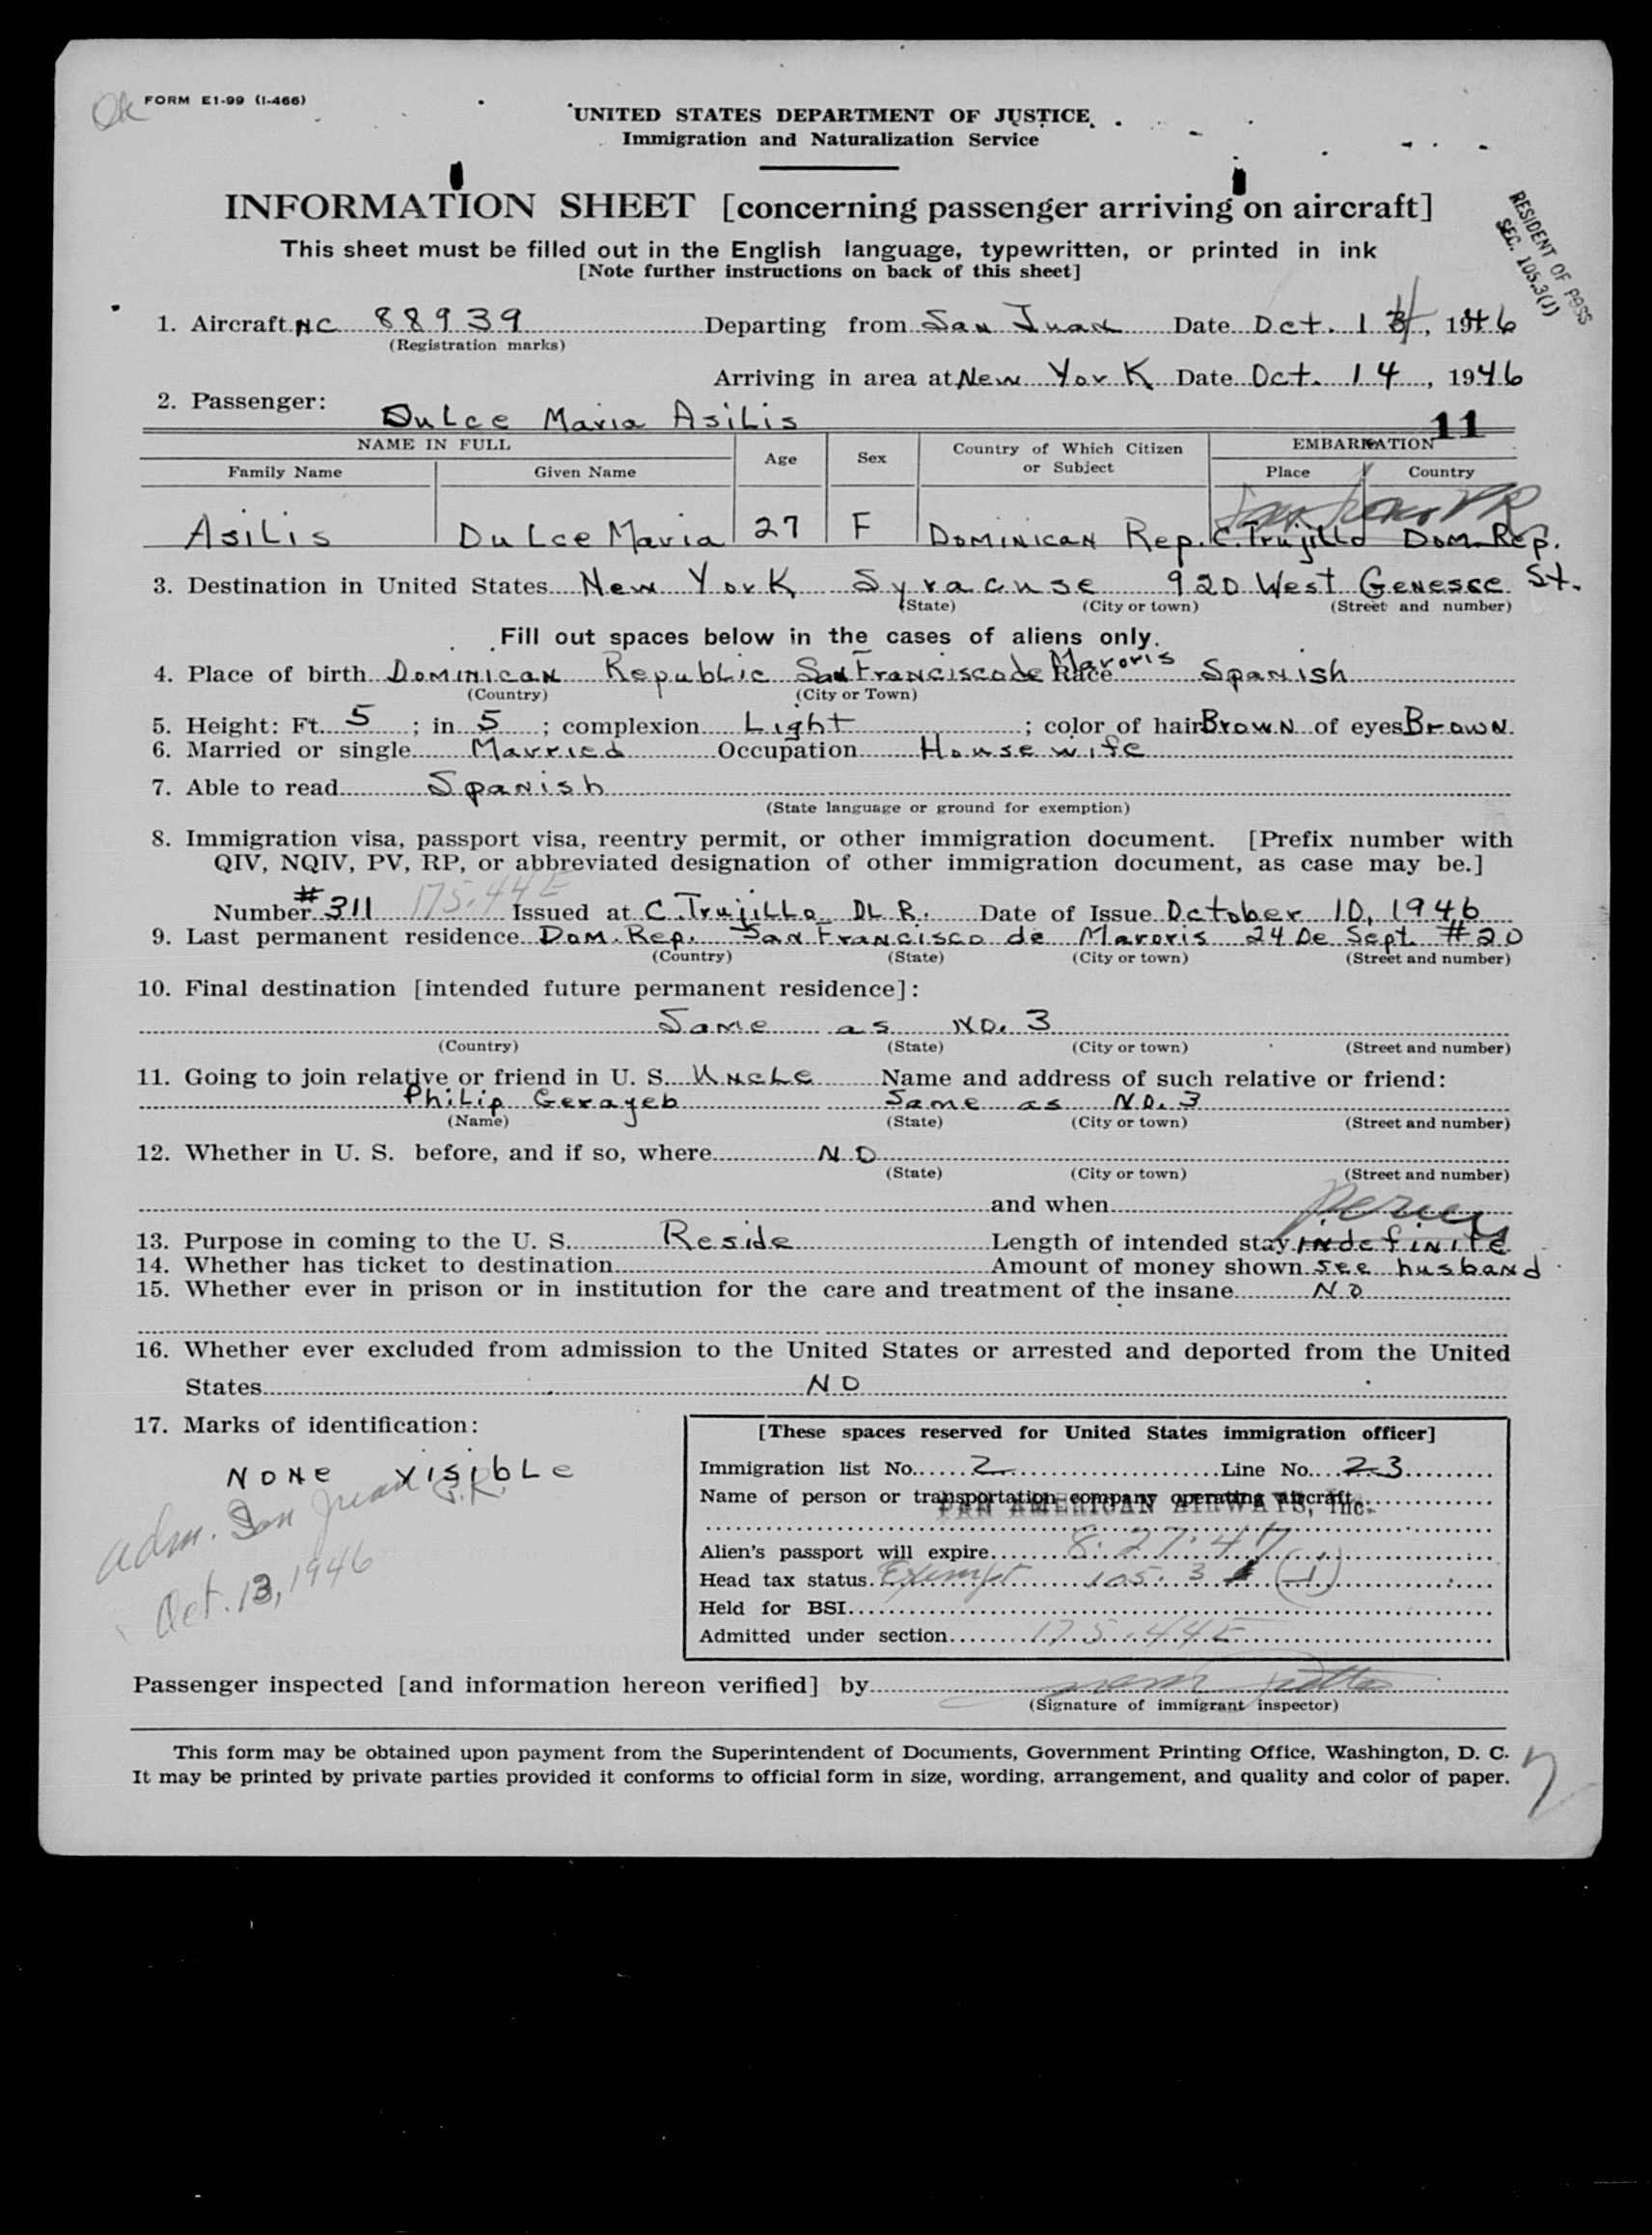 Ok FORM E1-99 (I-466)
UNITED STATES DEPARTMENT OF JUSTICE
Immigration and Naturalization Service
INFORMATION SHEET [concerning passenger arriving on aircraft]
This sheet must be filled out in the English language, typewritten, or printed in ink
[Note further instructions on back of this sheet]
RESIDENT OF POSS
SEC. 105.3(J)
1. Aircraft NC 88939 Departing from San Juan Date Oct. 14, 1946
(Registration marks)
Arriving in area at New York Date Oct. 14, 1946
2. Passenger: Dulce Maria Asilis
11
NAME IN FULL Age Sex Country of Which Citizen or Subject EMBARKATION
Family Name Given Name Place Country
San Juan PR
Asilis Dulce Maria 27 F Dominican Rep. C. Trujillo Dom. Rep.
3. Destination in United States New York Syracuse 920 West Genesee St.
(State) (City or town) (Street and number)
Fill out spaces below in the cases of aliens only.
4. Place of birth Dominican Republic San Francisco de Maroris Race Spanish
(Country) (City or Town)
5. Height: Ft. 5; in 5; complexion Light; color of hair Brown of eyes Brown
6. Married or single Married Occupation Housewife
7. Able to read Spanish
(State language or ground for exemption)
8. Immigration visa, passport visa, reentry permit, or other immigration document. [Prefix number with
QIV, NQIV, PV, RP, or abbreviated designation of other immigration document, as case may be.]
Number #311 175.44E Issued at C. Trujillo D. R. Date of Issue October 10, 1946
9. Last permanent residence Dom. Rep. San Francisco de Maroris 24 De Sept. #20
(Country) (State) (City or town) (Street and number)
10. Final destination [intended future permanent residence]:
Same as NO. 3
(Country) (State) (City or town) (Street and number)
11. Going to join relative or friend in U. S. Uncle Name and address of such relative or friend:
Philip Gerayeb Same as NO. 3
(Name) (State) (City or town) (Street and number)
12. Whether in U. S. before, and if so, where NO
(State) (City or town) (Street and number)
and when
13. Purpose in coming to the U. S. Reside Length of intended stay indefinite
14. Whether has ticket to destination Amount of money shown see husband
15. Whether ever in prison or in institution for the care and treatment of the insane NO
16. Whether ever excluded from admission to the United States or arrested and deported from the United
States NO
17. Marks of identification:
NONE visible
adm. San Juan P.R.
Oct. 13, 1946
[These spaces reserved for United States immigration officer]
Immigration list No. 2 Line No. 23
Name of person or transportation company operating aircraft
PAN AMERICAN AIRWAYS, Inc.
Alien's passport will expire 8.27.47
Head tax status Exempt 105.3 (1)
Held for BSI
Admitted under section 175.44E
Passenger inspected [and information hereon verified] by
(Signature of immigrant inspector)
This form may be obtained upon payment from the Superintendent of Documents, Government Printing Office, Washington, D. C.
It may be printed by private parties provided it conforms to official form in size, wording, arrangement, and quality and color of paper.